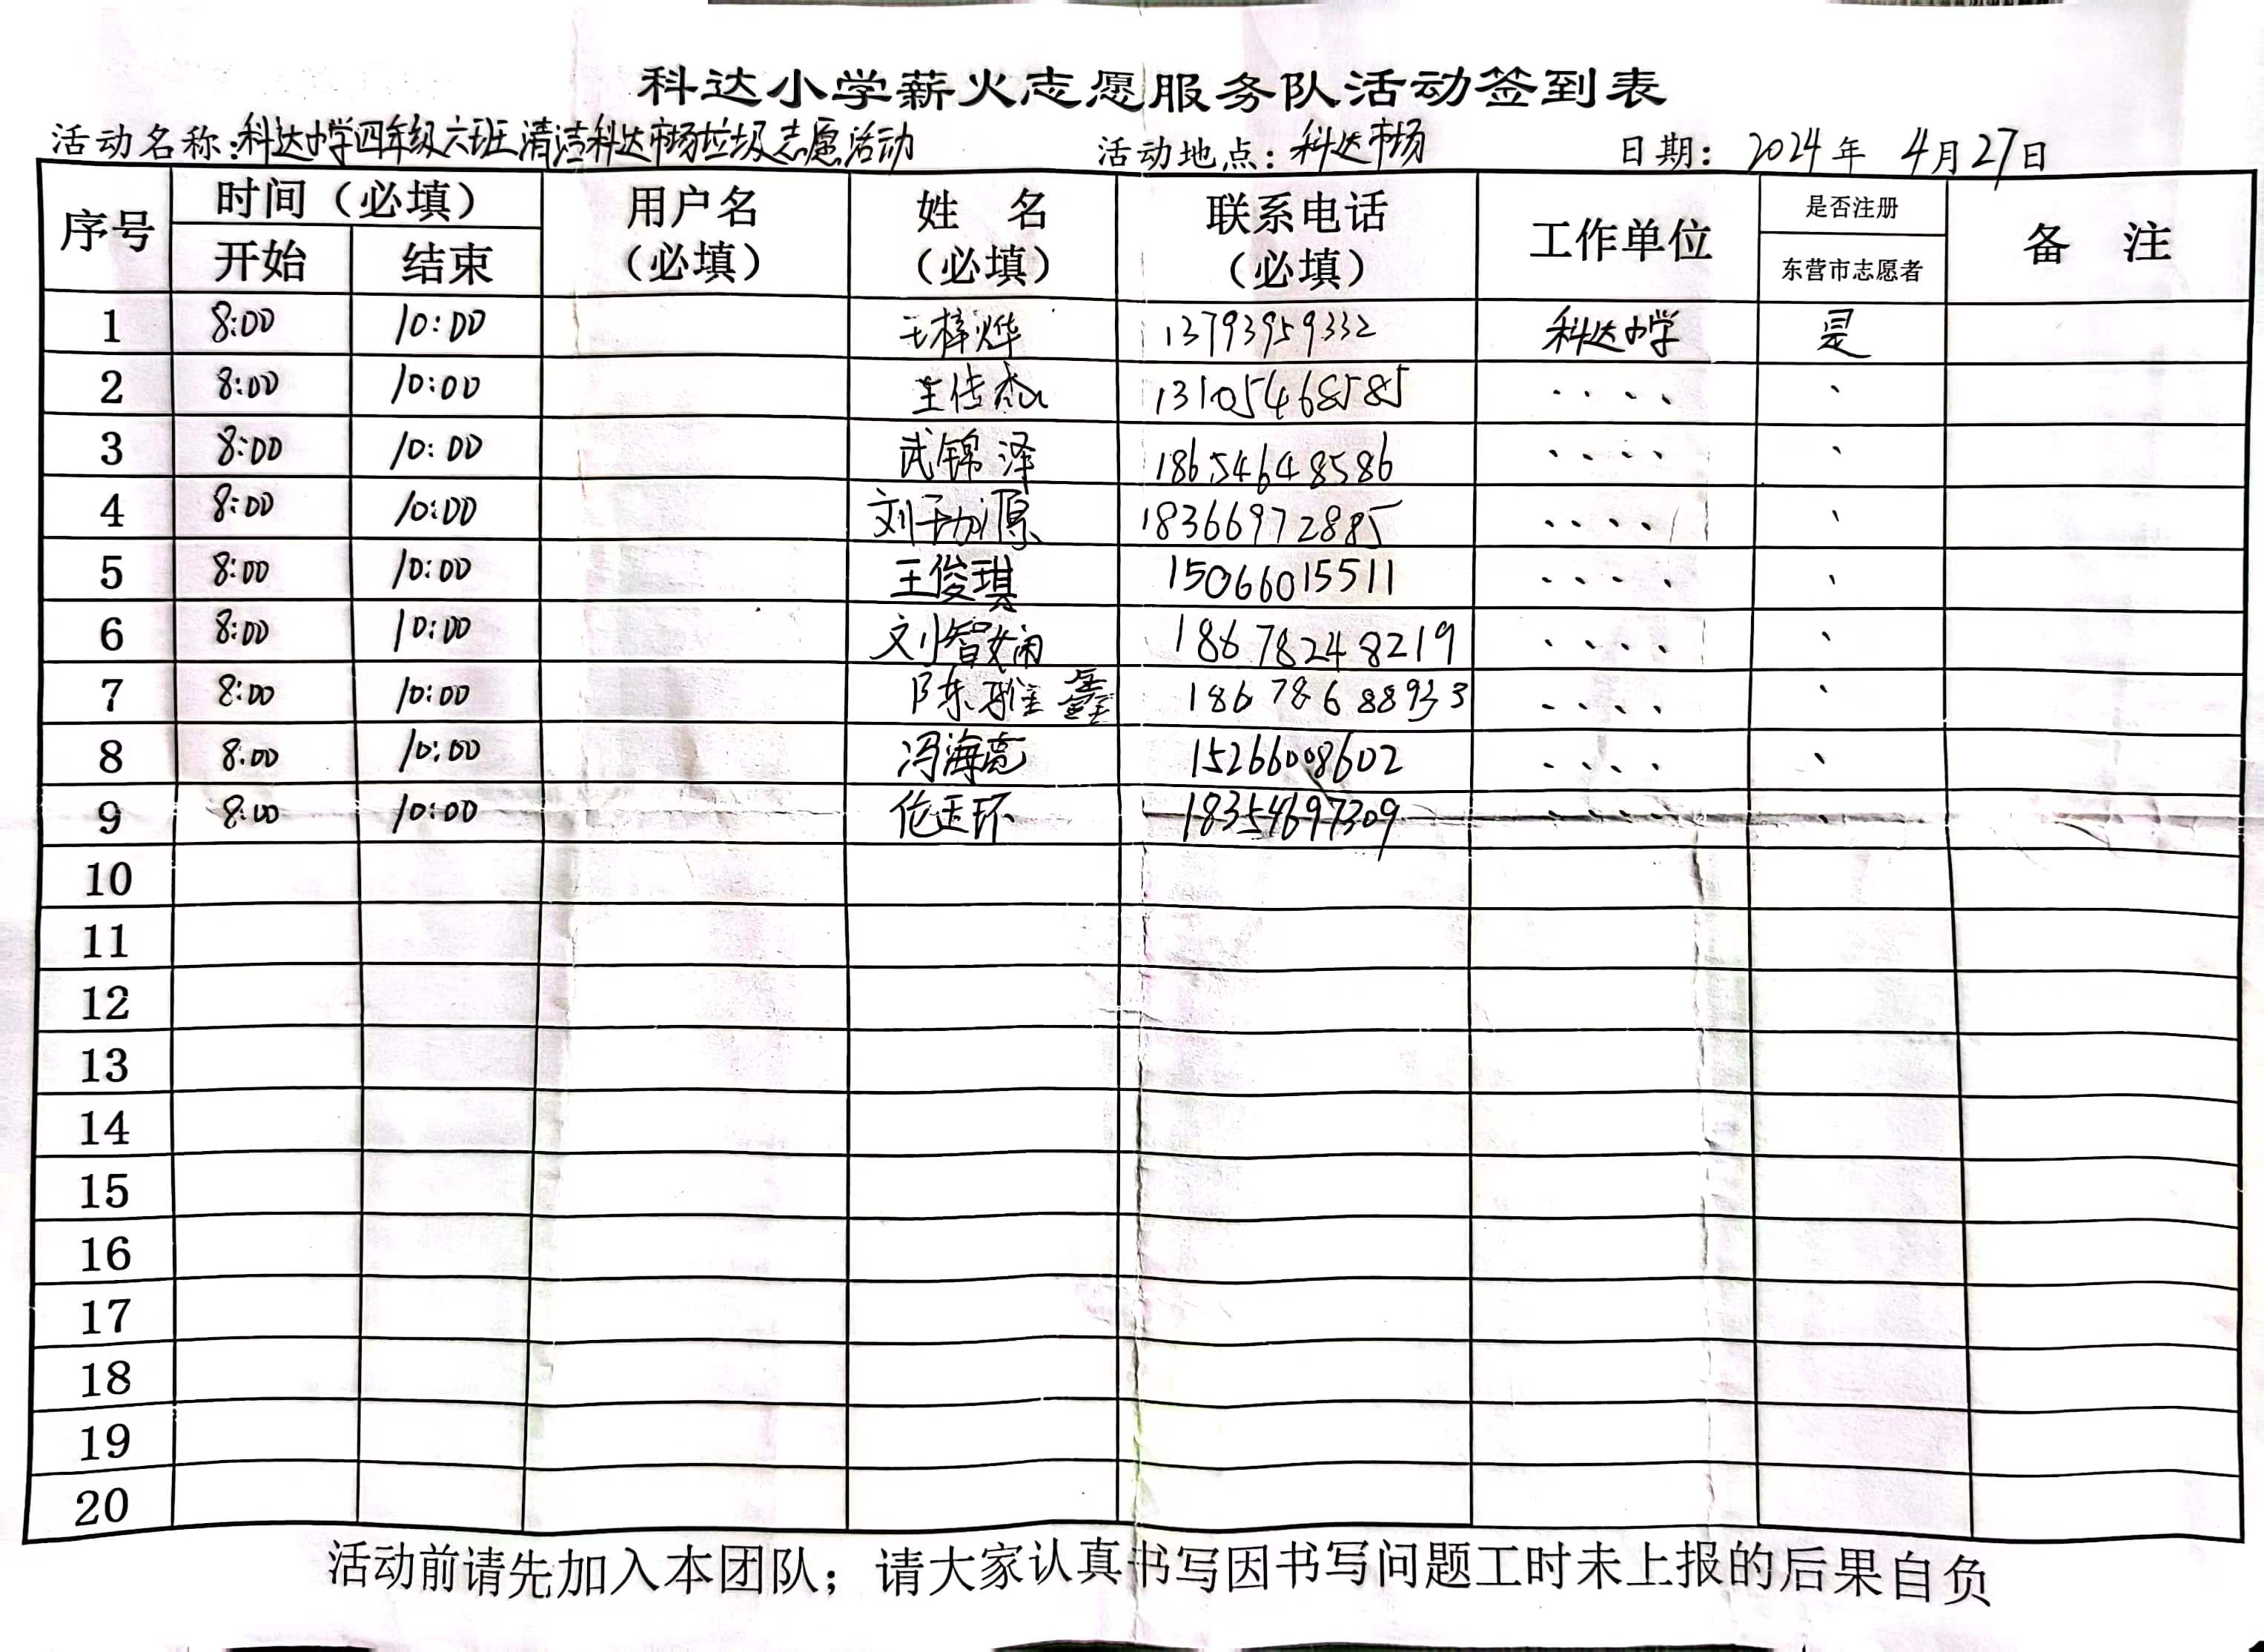 科达小学薪火志愿服务队活动签到表
活动名称:科达小学四年级六班清洁科达市场垃圾志愿活动 活动地点:科达市场 日期: 2024年 4月27日
序号 时间（必填） 用户名（必填） 姓 名（必填） 联系电话（必填） 工作单位 是否注册 东营市志愿者 备 注
开始 结束
1 8:00 10:00 王梓烨 13793959332 科达小学 是
2 8:00 10:00 王传杰 13105468585 、、、、 、
3 8:00 10:00 武锦泽 18654648586 、、、、 、
4 8:00 10:00 刘子源 18366972885 、、、、 、
5 8:00 10:00 王俊琪 15066015511 、、、、 、
6 8:00 10:00 刘智娴 18678248219 、、、、 、
7 8:00 10:00 陈雅鑫 18678688933 、、、、 、
8 8:00 10:00 冯海亮 15266008602 、、、、 、
9 8:00 10:00 环 18354697309 、、、、 、
10
11
12
13
14
15
16
17
18
19
20
活动前请先加入本团队；请大家认真书写因书写问题工时未上报的后果自负